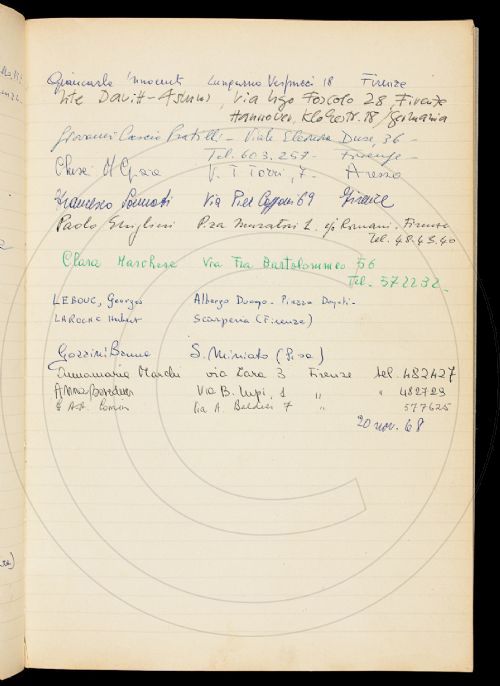 Giancarlo Innocenti Lungarno Vespucci 18 Firenze
Ute Davitt-Asmus, Via Ugo Foscolo 28, Firenze
Hannover, 18/Germania
Giovanni Cascio Pratilli - Viale Eleonora Duse, 36 -
Tel. 603.257 - Firenze -
V. 7 - Arezzo
Francesco Via Pier Capponi 69 Firenze
Paolo P.za Muratori 2. Firenze
Tel. 48.43.40
Clara Marchese Via Fra Bartolommeo 56
Tel. 572232
LEBOUC, Georges Albergo Duomo - Piazza
LAROCHE Hubert Scarperia (Firenze)
Gozzini Bruna S. Miniato (Pisa)
Annamaria Marchi via Zara 3 Firenze tel. 482427
Anna Via B. Lupi, 1 " " 482729
Via A. Baldesi 7 " 577625
20 nov. 68